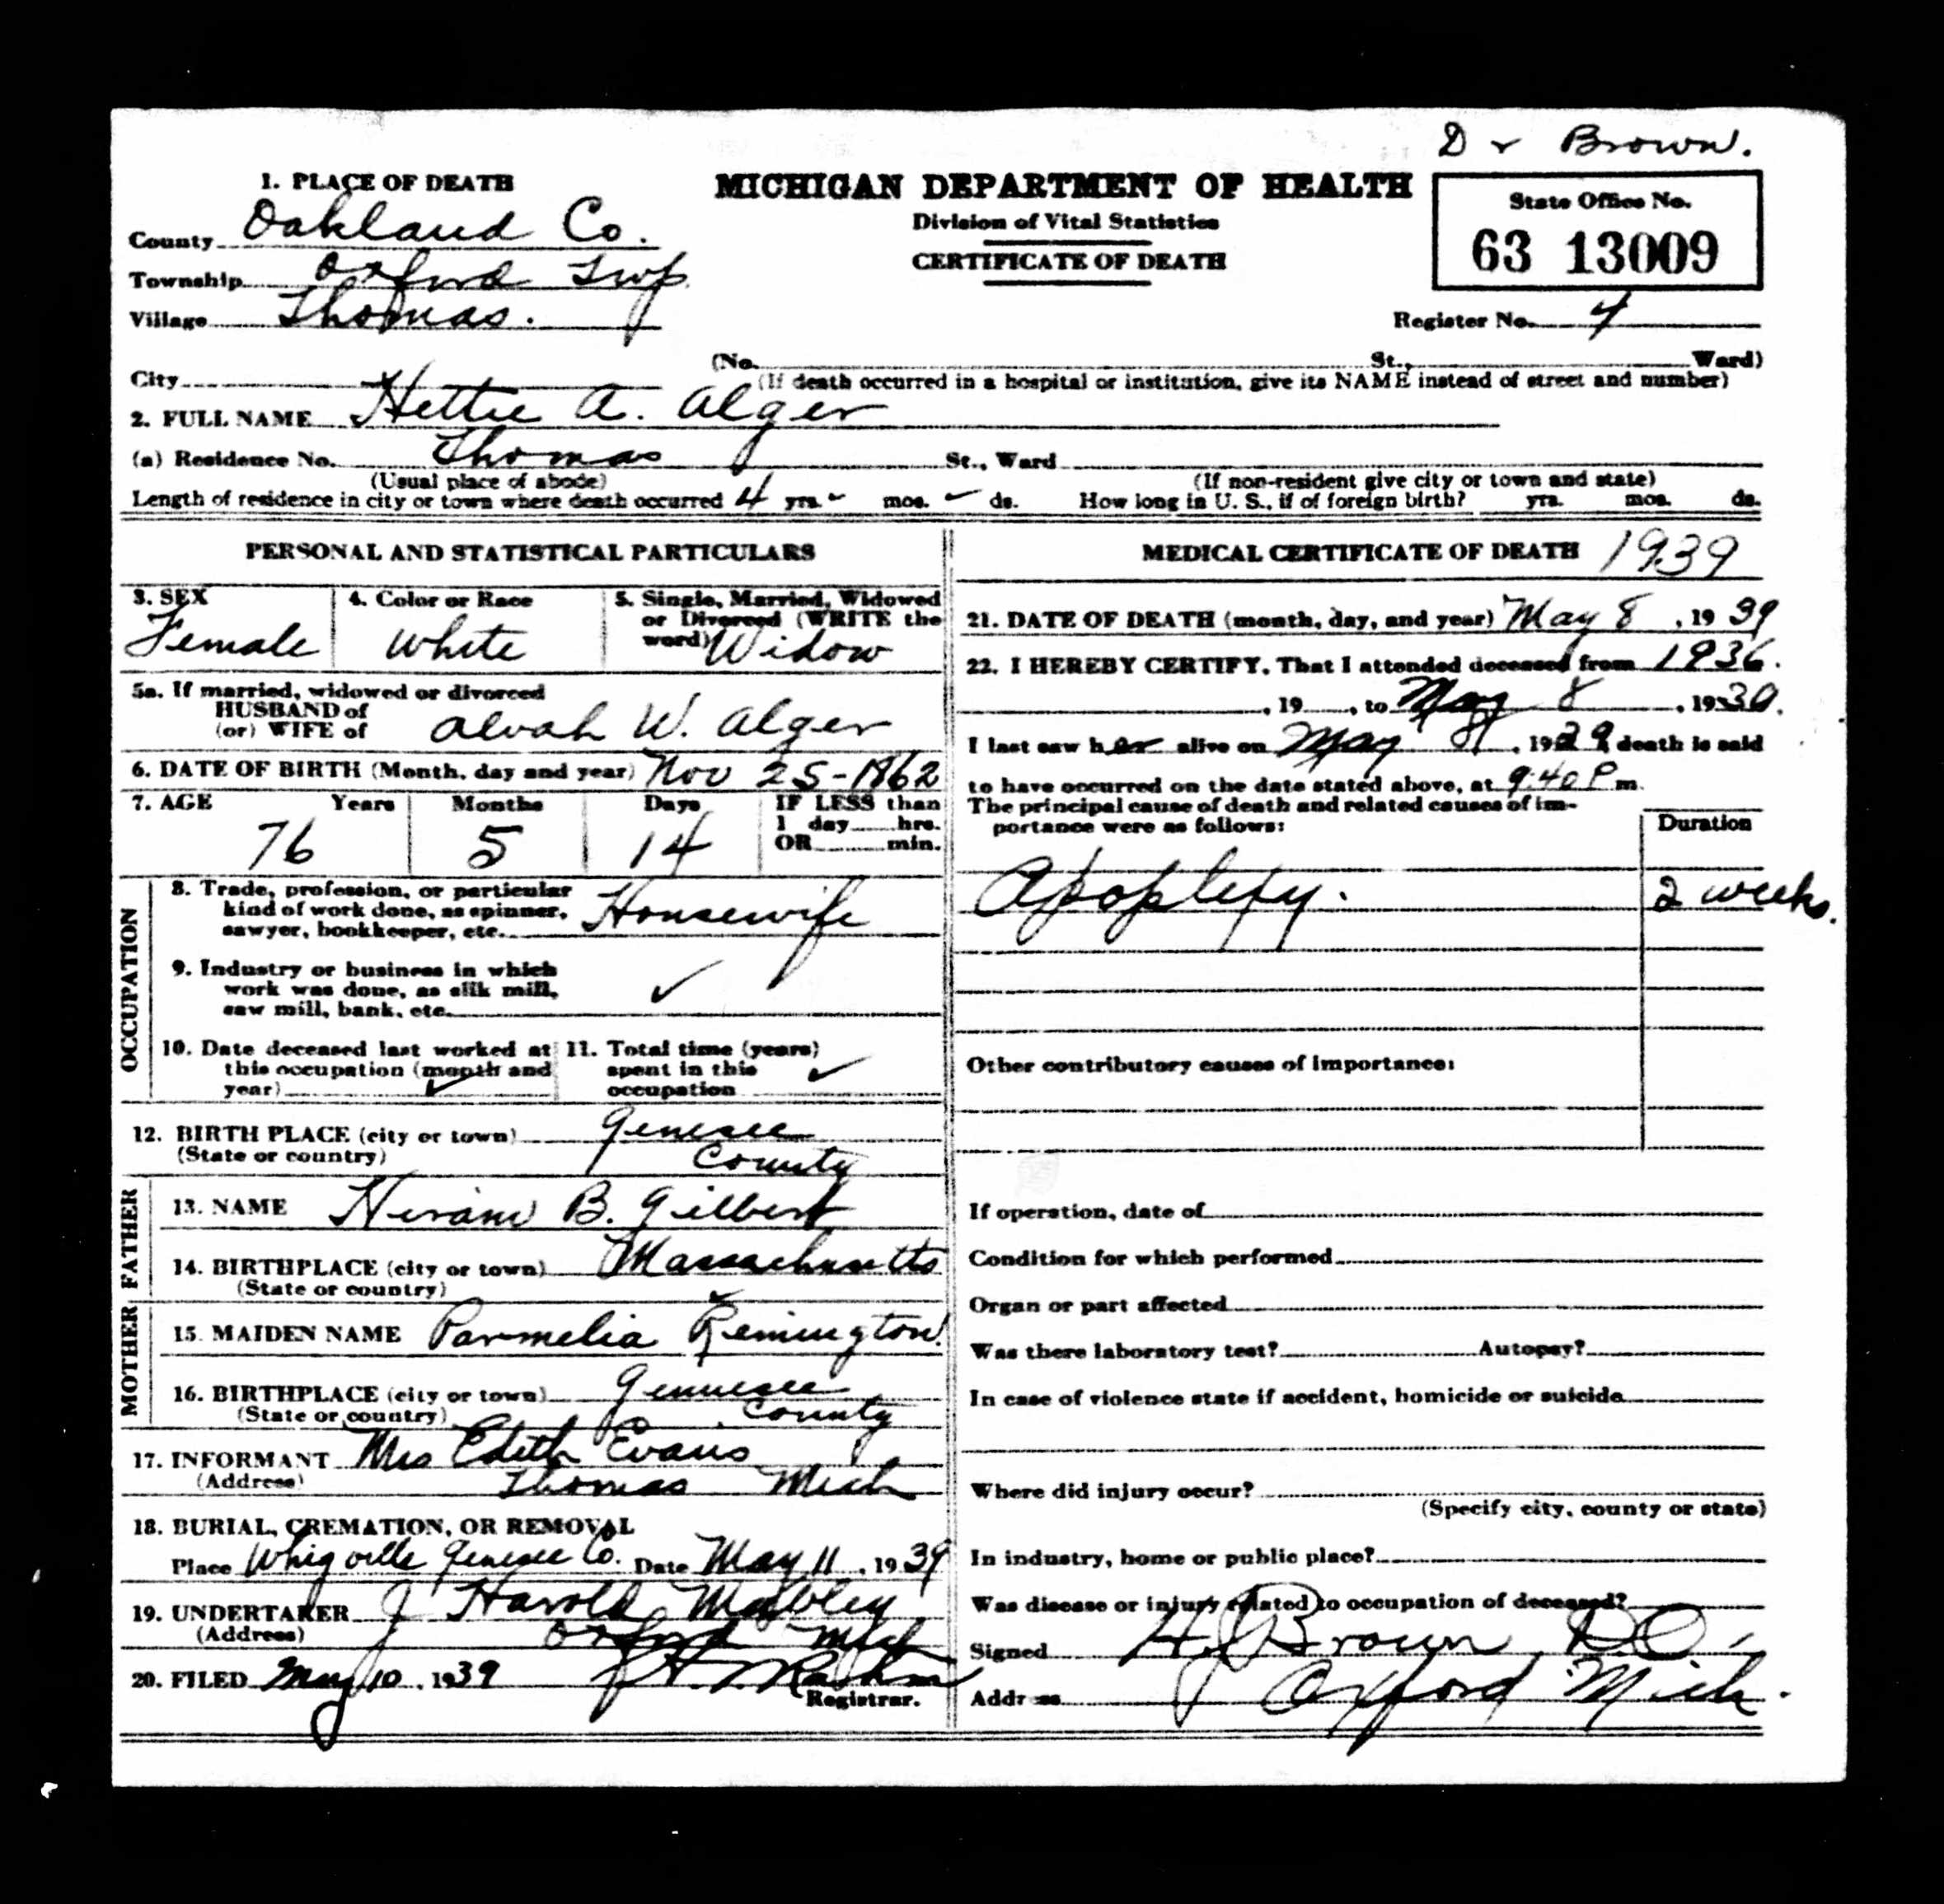 Dr Brown.
1. PLACE OF DEATH
MICHIGAN DEPARTMENT OF HEALTH
Division of Vital Statistics
CERTIFICATE OF DEATH
State Office No.
63 13009
County Oakland Co.
Township Oxford Twp.
Village Thomas.
Register No. 4
City
(No. St., Ward)
(If death occurred in a hospital or institution, give its NAME instead of street and number)
2. FULL NAME Hettie A. Alger
(a) Residence No. Thomas St., Ward
(Usual place of abode) (If non-resident give city or town and state)
Length of residence in city or town where death occurred 4 yrs. - mos. - ds. How long in U. S., if of foreign birth? yrs. mos. ds.
PERSONAL AND STATISTICAL PARTICULARS
3. SEX
Female
4. Color or Race
White
5. Single, Married, Widowed
or Divorced (WRITE the
word) Widow
5a. If married, widowed or divorced
HUSBAND of
(or) WIFE of Alvah W. Alger
6. DATE OF BIRTH (Month, day and year) Nov 25-1862
7. AGE Years Months Days IF LESS than
1 day hrs.
OR min.
76 5 14
OCCUPATION
8. Trade, profession, or particular
kind of work done, as spinner,
sawyer, bookkeeper, etc. Housewife
9. Industry or business in which
work was done, as silk mill,
saw mill, bank, etc. ✓
10. Date deceased last worked at
this occupation (month and
year) ✓
11. Total time (years)
spent in this
occupation ✓
12. BIRTH PLACE (city or town) Genesee
(State or country) County
FATHER
13. NAME Hiram B. Gilbert
14. BIRTHPLACE (city or town) Massachusetts
(State or country)
MOTHER
15. MAIDEN NAME Parmelia Remington
16. BIRTHPLACE (city or town) Gennesee
(State or country) County
17. INFORMANT Mrs Edith Evans
(Address) Thomas Mich
18. BURIAL, CREMATION, OR REMOVAL
Place Whigville Genesee Co. Date May 11, 1939
19. UNDERTAKER J Harold Mobley
(Address) Oxford Mich
20. FILED May 10, 1939
Registrar.
MEDICAL CERTIFICATE OF DEATH 1939
21. DATE OF DEATH (month, day, and year) May 8, 1939
22. I HEREBY CERTIFY, That I attended deceased from 1936.
, 19 , to May 8, 1939.
I last saw her alive on May 8, 1939, death is said
to have occurred on the date stated above, at 9:40 P m.
The principal cause of death and related causes of im-
portance were as follows:
Duration
Apoplexy. 2 weeks.
Other contributory causes of importance:
If operation, date of
Condition for which performed
Organ or part affected
Was there laboratory test? Autopsy?
In case of violence state if accident, homicide or suicide
Where did injury occur?
(Specify city, county or state)
In industry, home or public place?
Was disease or injury related to occupation of deceased?
Signed H. J. Brown D.O.
Address Oxford Mich.